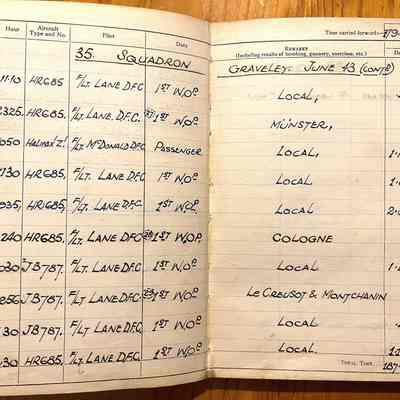 Hour Aircraft Type and No. Pilot Duty Remarks (including results of bombing, gunnery, exercises, etc.) Time carried forward:—
35 SQUADRON GRAVELEY. JUNE 43 (CONTD)
HR685 F/LT LANE D.F.C 1ST W.OP LOCAL,
2325 HR685. F/LT. LANE. D.F.C. 1ST W.OP MÜNSTER,
HALIFAX 'Z'. F/LT McDONALD DFC PASSENGER LOCAL,
HR685, F/LT LANE DFC 1ST W.OP. LOCAL
HR685, F/LT. LANE DFC. 1ST W.OP. LOCAL
HR685. F/LT. LANE DFC 1ST W.OP. COLOGNE
JB787. F/LT. LANE DFC. 1ST W.OP LOCAL
JB787. F/LT. LANE DFC. 1ST W.OP LE CREUSOT & MONTCHANIN
JB787. F/LT. LANE DFC. 1ST W.OP LOCAL
HR685, F/LT. LANE DFC. 1ST W.OP LOCAL.
TOTAL TIME